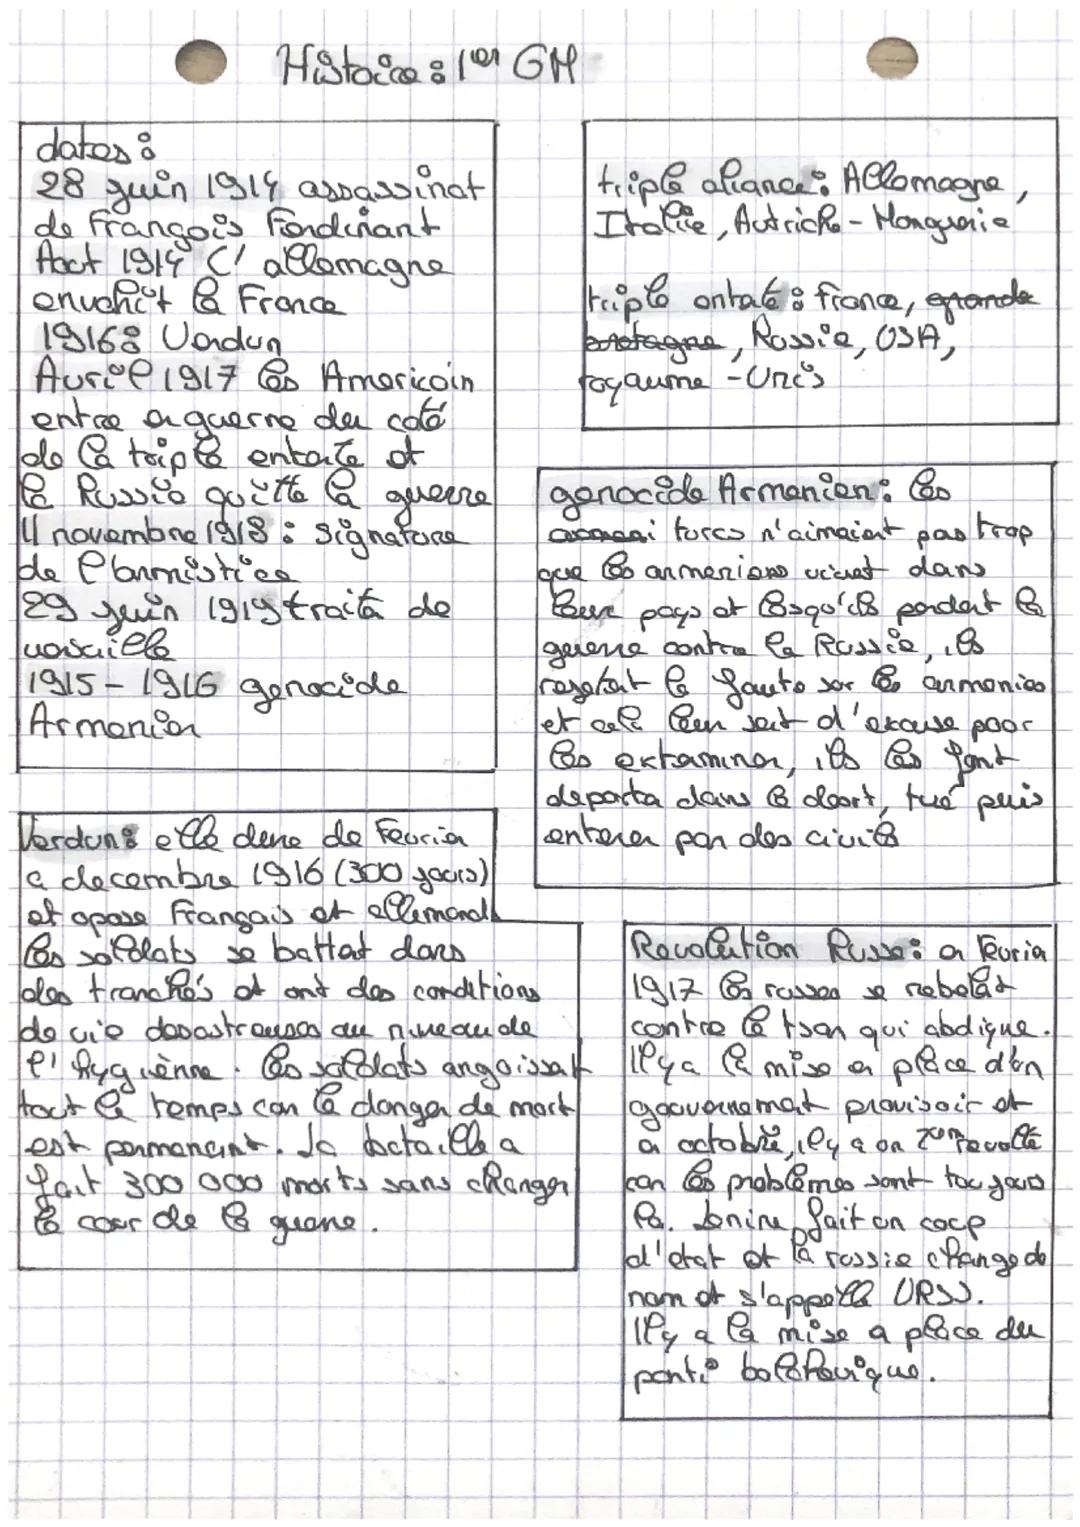 Histoire : 1er GM
dates :
28 juin 1914 assassinat
de François Ferdinant
Aout 1914 l'allemagne
envahit la France
1916 : Verdun
Avril 1917 les Americain
entre en guerre du coté
de la triple entente et
la Russie quitte la guerre
11 novembre 1918 : signature
de l'armistice
29 juin 1919 traité de
versaille
1915 - 1916 genocide
Armenien
triple aliance : Allemagne,
Italie, Autriche - Honguerie
triple entate : france, grande
bretagne, Russie, USA,
royaume - Unis
genocide Armenien : les
turcs n'aimaient pas trop
que les armeniens vivent dans
leur pays et lorsqu'ils perdent la
guerre contre la Russie, ils
rejetent la faute sur les armenies
et cela leur sert d'excuse pour
les extaminer, ils les font
deporta dans le desert, tué puis
enterer par des civils
Verdun : elle dure de Fevrier
a decembre 1916 (300 jours)
et opose Français et allemand
les soldats se battent dans
des tranchés et ont des conditions
de vie desastreuses au niveau de
l'hyguiènne. les soldats angoissent
tout le temps car le danger de mort
est permenant. La bataille a
fait 300 000 morts sans changer
le cour de la guerre.
Revolution Russe : en fevrier
1917 les russes se rebelent
contre le tsar qui abdique.
Il y a la mise en place d'un
gouvernement provisoir et
en octobre, il y a un 2em revolte
car les problèmes sont toujours
la. Lenine fait un coup
d'etat et la russie change de
nom et s'appelle URSS.
Il y a la mise a place du
parti bolchevique.